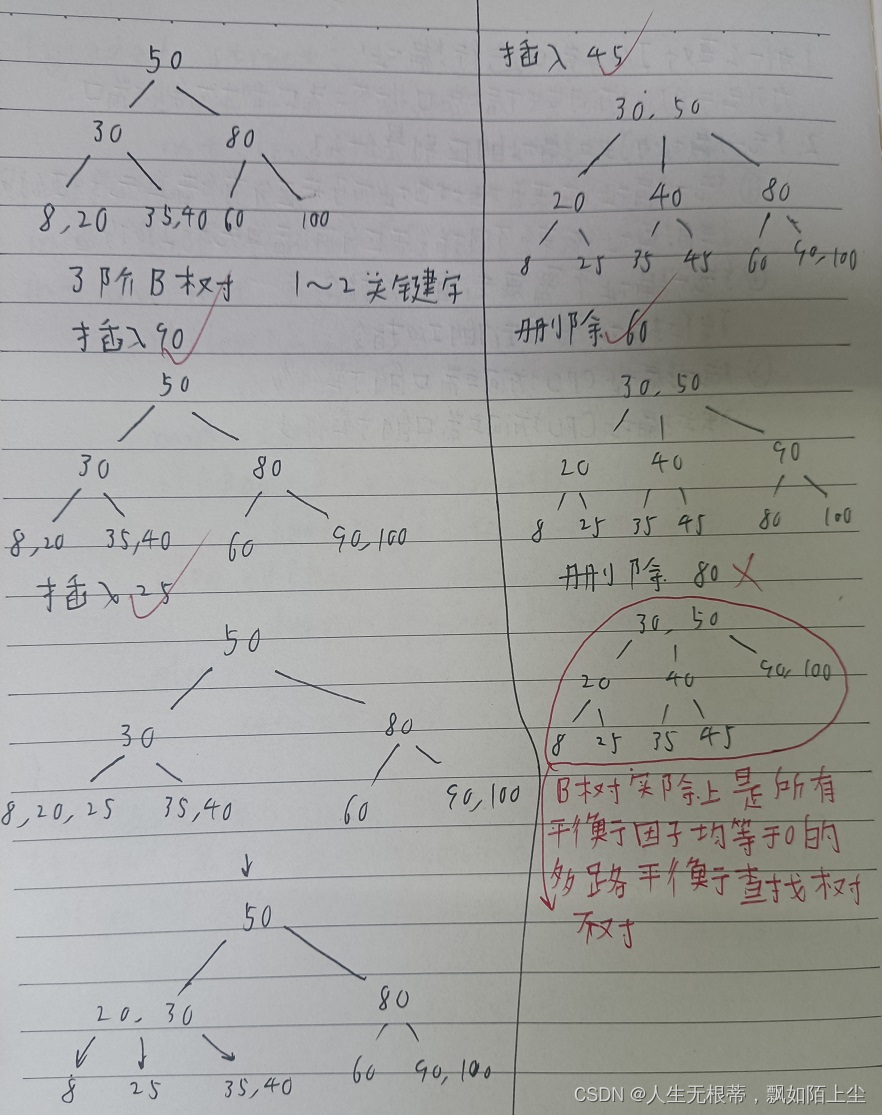 50
30 80
8,20 35,40 60 100
3阶B树 1~2关键字
插入90
50
30 80
8,20 35,40 60 90,100
插入25
50
30 80
8,20,25 35,40 60 90,100
50
20,30 80
8 25 35,40 60 90,100
插入45
30,50
20 40 80
8 25 35 45 60 90,100
删除60
30,50
20 40 90
8 25 35 45 80 100
删除 80
30,50
20 40 90,100
8 25 35 45
B树实际上是所有
平衡因子均等于0的
多路平衡查找树
树
CSDN @人生无根蒂，飘如陌上尘